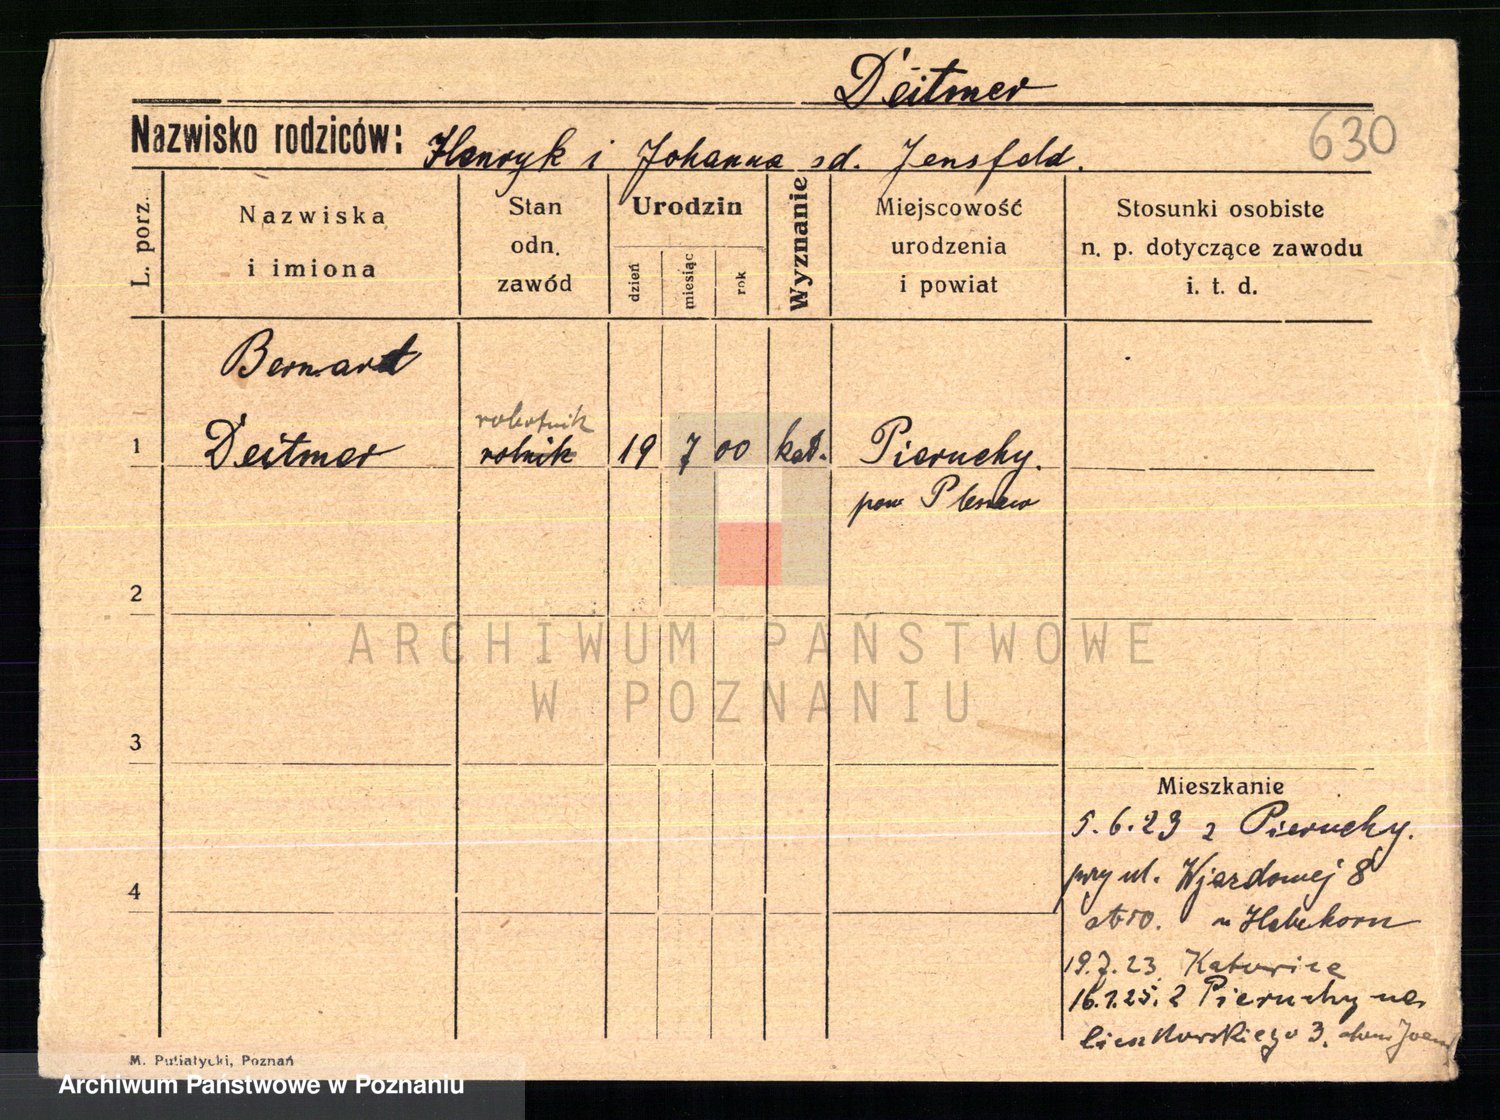 Deitmer
630
Nazwisko rodziców: Henryk i Johanna sd. Jensfeld.
L. porz.
Nazwiska i imiona
Stan odn. zawód
Urodzin
dzień
miesiąc
rok
Wyznanie
Miejscowość urodzenia i powiat
Stosunki osobiste n. p. dotyczące zawodu i. t. d.
Bernard
robotnik
1 Deitmer rolnik 19 7 00 kat. Pieruchy.
pow Pleszew
2
ARCHIWUM PAŃSTWOWE
W POZNANIU
3
Mieszkanie
5.6.23 z Pieruchy.
przy ul. Wjazdowej 8
4
u Habekorn
19.7.23 Katowice
16.1.25. z Pieruchy na
3.
M. Putiatycki, Poznań
Archiwum Państwowe w Poznaniu